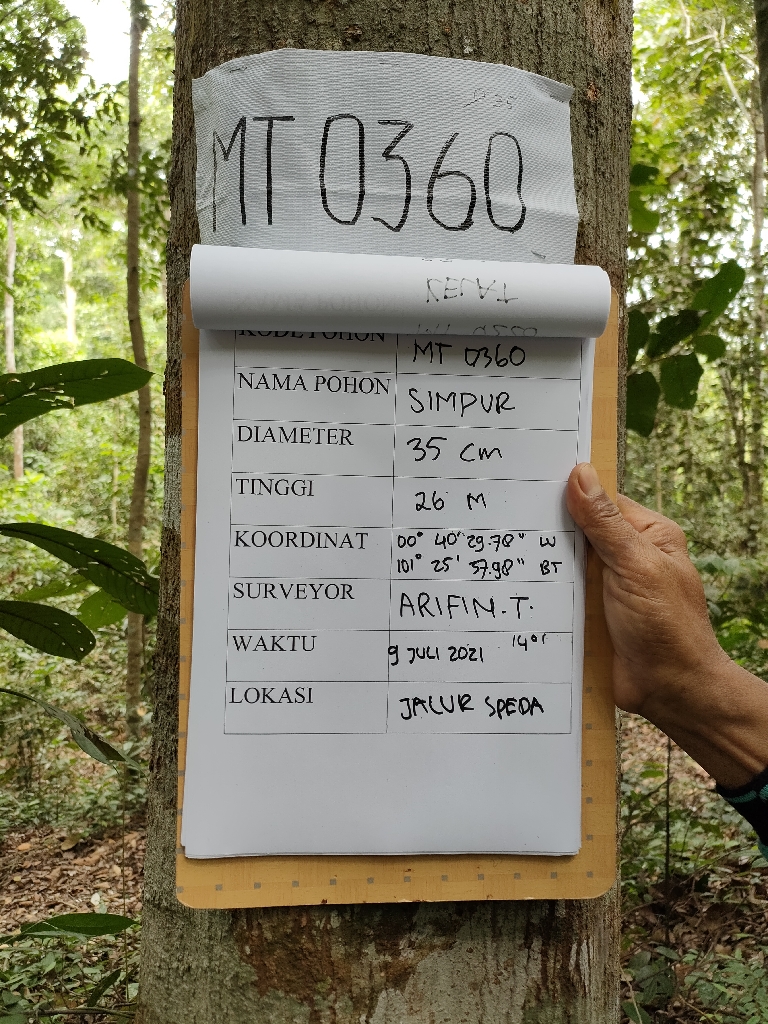 MT 0360
KELAT
KODE POHON MT 0360
NAMA POHON SIMPUR
DIAMETER 35 cm
TINGGI 26 M
KOORDINAT 00° 40' 29.78" W
101° 25' 57.98" BT
SURVEYOR ARIFIN.T.
WAKTU 9 JULI 2021 14⁰¹
LOKASI JALUR SPEDA